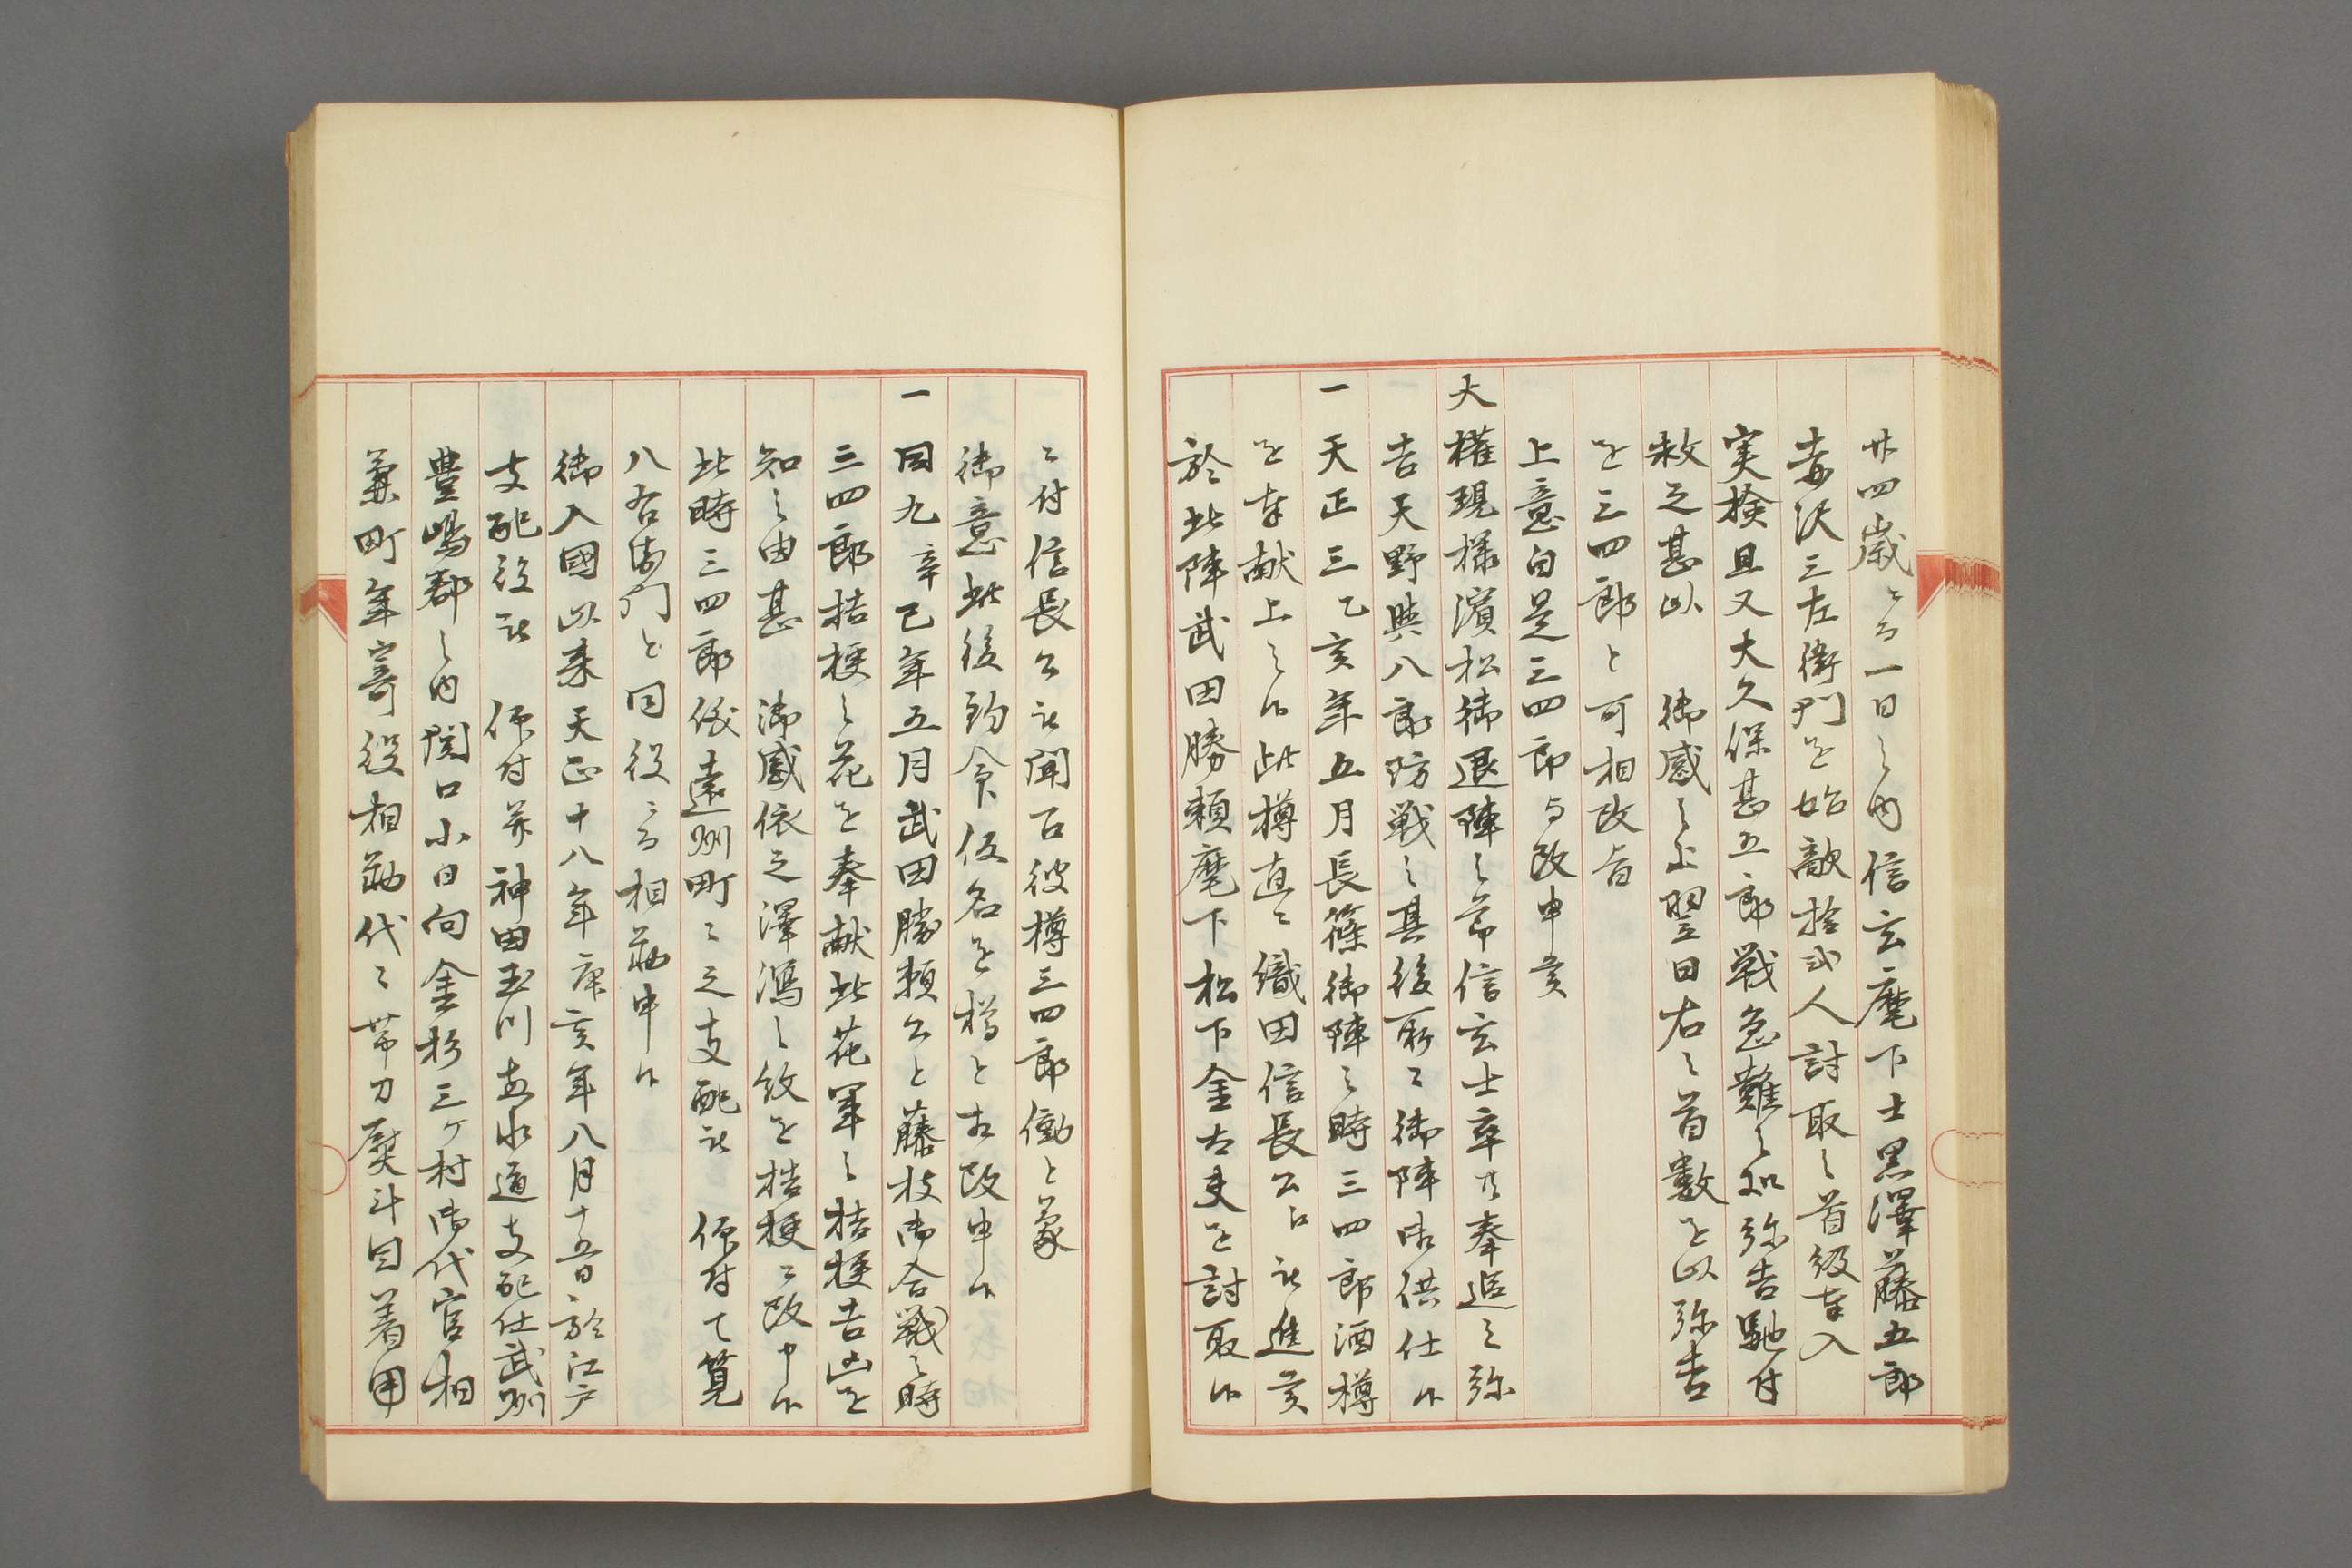 廿四歳ニ而一日之内信玄麾下士黒澤藤五郎
赤沢三左衛門を始敵拾弐人討取之首級奉入
実検且又大久保甚五郎戦急難之処弥吉馳付
救之甚以　御感之上翌日右之首數を以弥吉
を三四郎と可相改旨
上意自是三四郎与改申候
大権現様濱松御退陣之節信玄士卒共奉追之弥
吉天野與八郎防戦之其後所々御陣御供仕候
一天正三乙亥年五月長篠御陣之時三四郎酒樽
を奉献上之候此樽直ニ織田信長公江被進候
於此陣武田勝頼麾下松下金太夫を討取候
ニ付信長公被聞召彼樽三四郎働と蒙
御意此後到今仮名を樽と相改申候
一同九辛巳年五月武田勝頼公と藤枝御合戦之時
三四郎桔梗之花を奉献此花軍之桔梗吉凶を
知之由甚　御感依之澤瀉之紋を桔梗ニ改申候
此時三四郎儀遠州町々之支配被　仰付て筧
八右衛門と同役ニ而相勤申候
御入國以来天正十八年庚寅年八月十五日於江戸
支配役被　仰付并神田玉川両水道支配仕武州
豊嶋郡之内関口小日向金杉三ケ村御代官相
兼町年寄役相勤代々帯刀熨斗目着用